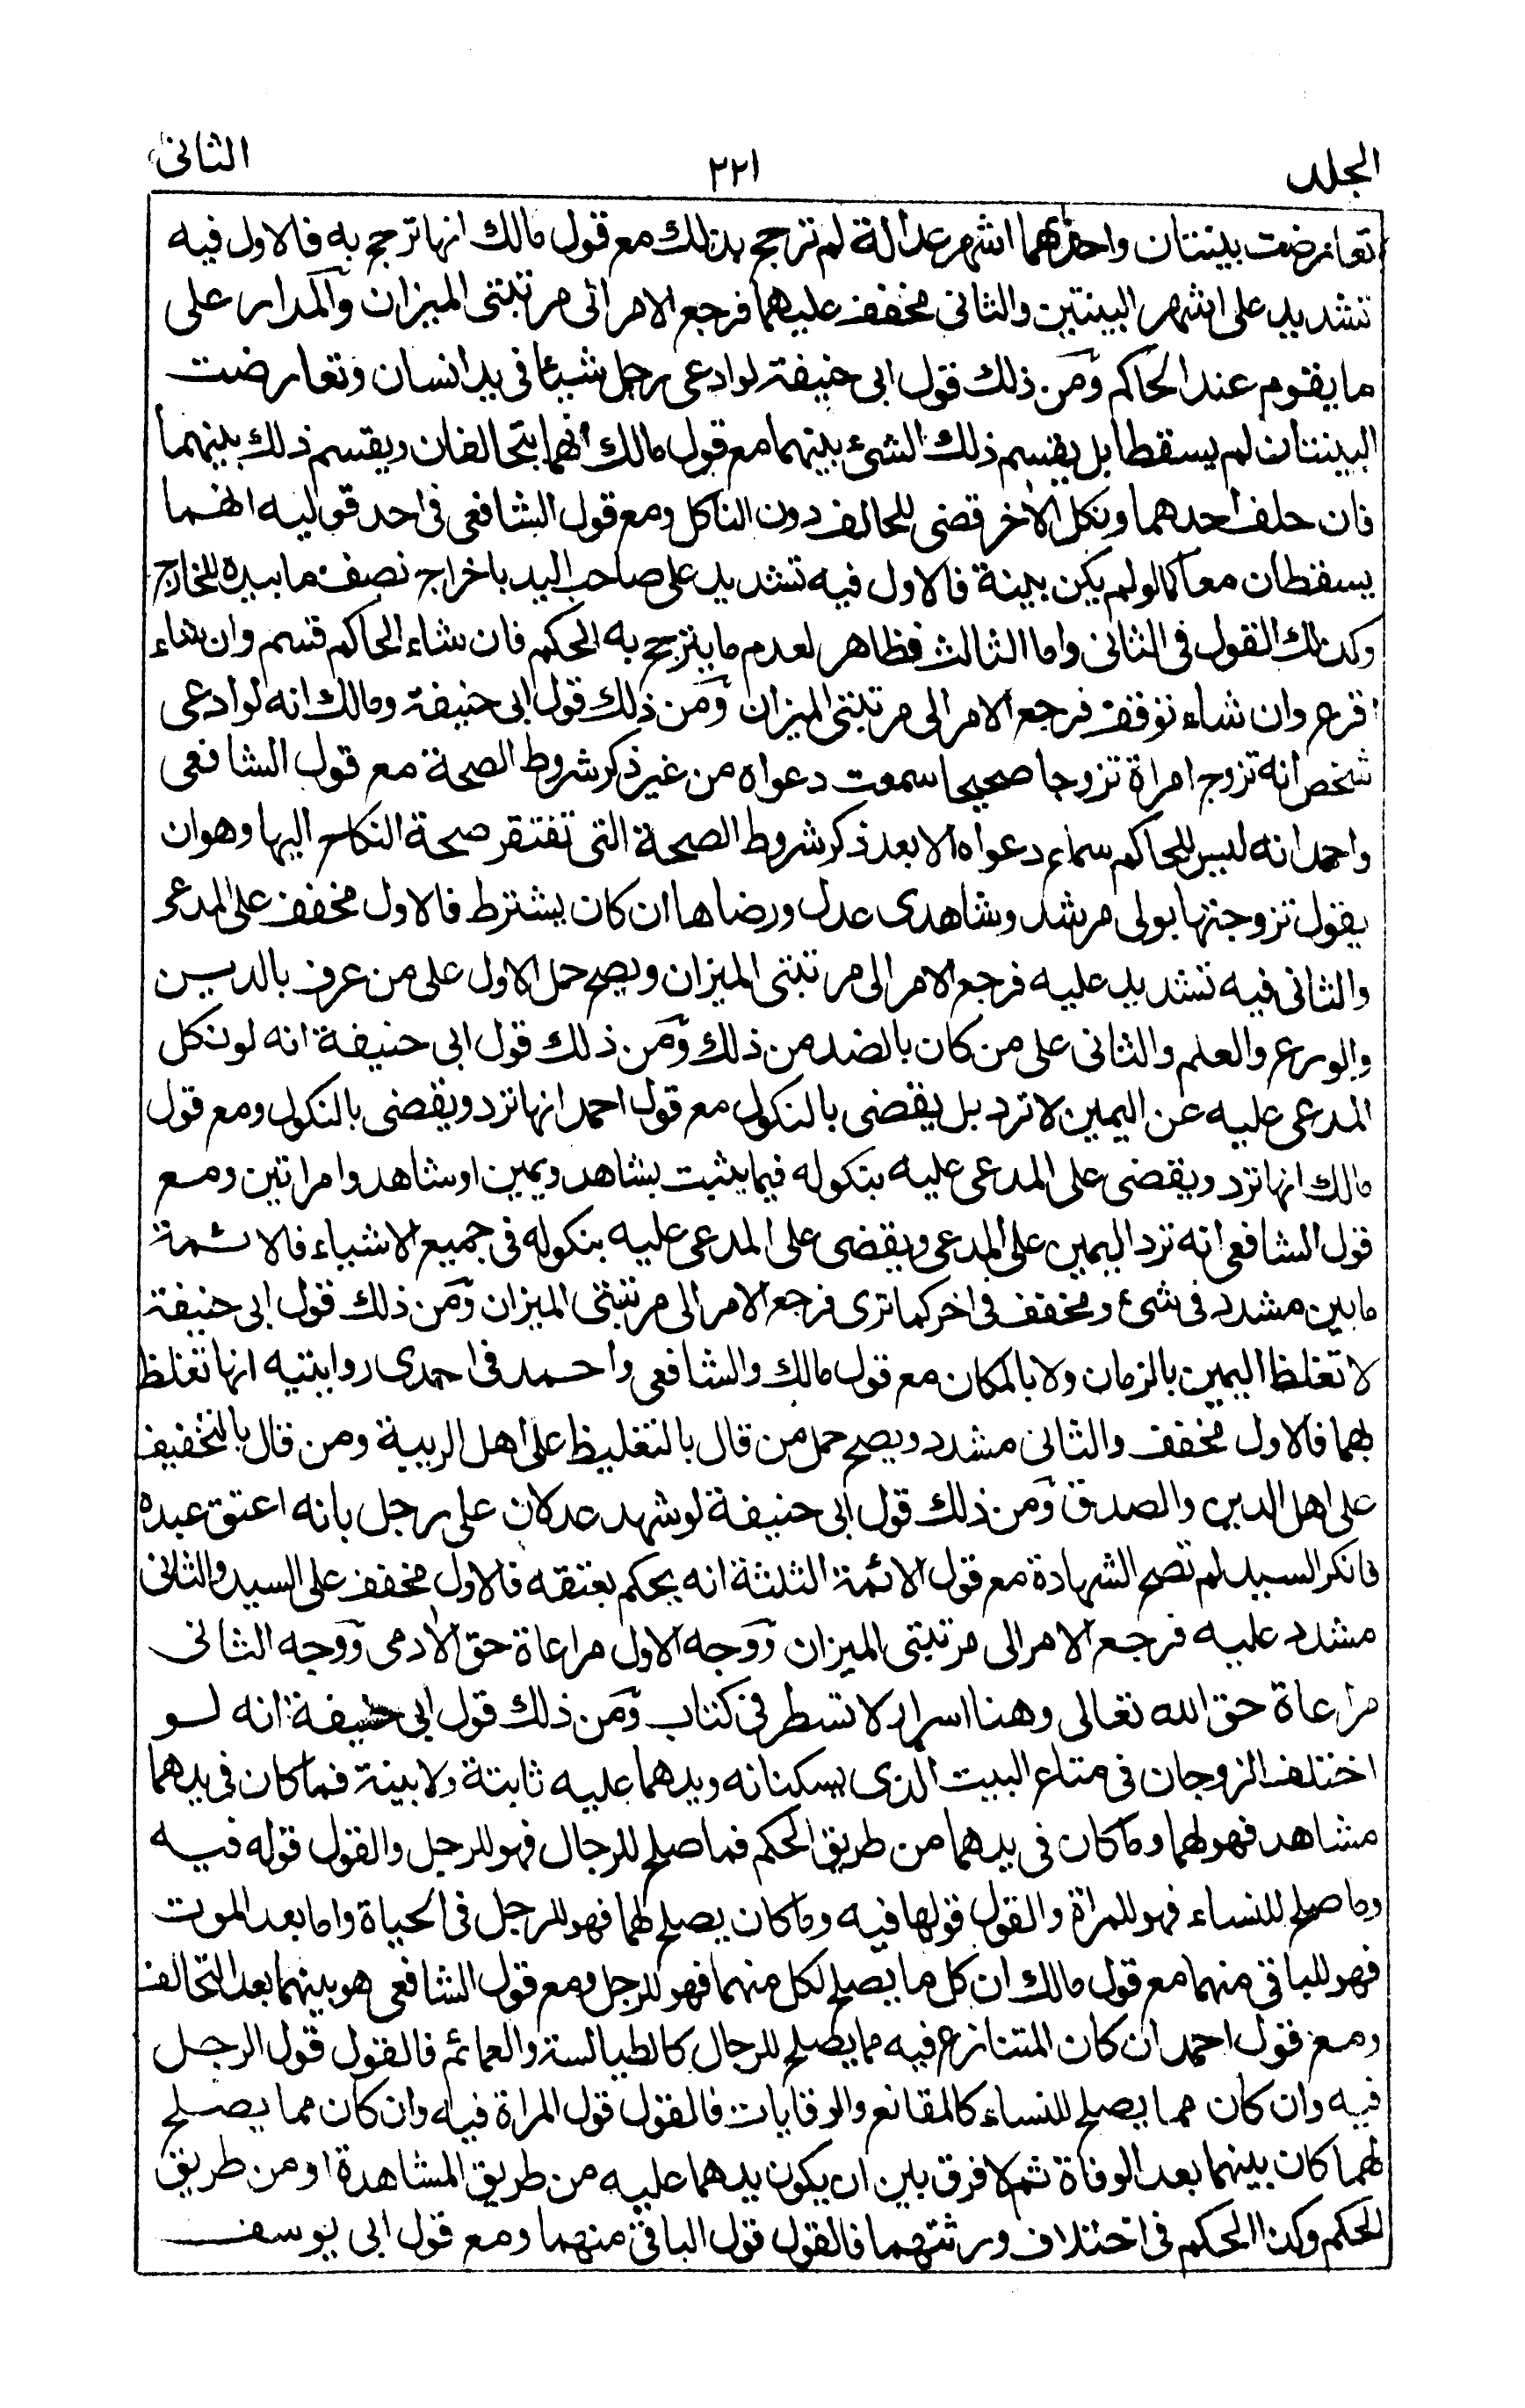 الجلد ٢٢١ الثانى
تعارضت بينتان واحدهما اشهر عدالة لم ترجح بذلك مع قول مالك انها ترجح به فالاول فيه
تشديد على اشهر البينتين والثانى مخفف عليهما فرجع الامر الى مرتبتى الميزان والمدار على
ما يقوم عند الحاكم ومن ذلك قول ابى حنيفة لو ادعى رجل شيئا فى يد انسان وتعارضت
البينتان لم يسقطا بل يقسم ذلك الشئ بينهما مع قول مالك انهما يتحالفان ويقسم ذلك بينهما
فان حلف احدهما ونكل الاخر قضى للحالف دون الناكل ومع قول الشافعى فى احد قوليه انهما
يسقطان معا كما لو لم يكن بينة فالاول فيه تشديد على صاحب اليد باخراج نصف ما بيده للخارج
وكذلك القول فى الثانى واما الثالث فظاهر لعدم ما يترجح به الحكم فان شاء الحاكم قسم وان شاء
اقرع وان شاء توقف فرجع الامر الى مرتبتى الميزان ومن ذلك قول ابى حنيفة ومالك انه لو ادعى
شخص انه تزوج امراة تزوجا صحيحا سمعت دعواه من غير ذكر شروط الصحة مع قول الشافعى
واحمد انه ليس للحاكم سماع دعواه الا بعد ذكر شروط الصحة التى تفتقر صحة النكاح اليها وهو ان
يقول تزوجتها بولى مرشد وشاهدى عدل ورضاها ان كان يشترط فالاول مخفف على المدعى
والثانى فيه تشديد عليه فرجع الامر الى مرتبتى الميزان ويصح حمل الاول على من عرف بالدين
والورع والعلم والثانى على من كان بالضد من ذلك ومن ذلك قول ابى حنيفة انه لو نكل
المدعى عليه عن اليمين لا ترد بل يقضى بالنكول مع قول احمد انها ترد ويقضى بالنكول ومع قول
مالك انها ترد ويقضى على المدعى عليه بنكوله فيما يثبت بشاهد ويمين او شاهد وامراتين ومع
قول الشافعى انه ترد اليمين على المدعى ويقضى على المدعى عليه بنكوله فى جميع الاشياء فالائمة
ما بين مشدد فى شئ ومخفف فى اخر كما ترى فرجع الامر الى مرتبتى الميزان ومن ذلك قول ابى حنيفة
لا تغلظ اليمين بالزمان ولا بالمكان مع قول مالك والشافعى واحمد فى احدى روايتيه انها تغلظ
بهما فالاول مخفف والثانى مشدد ويصح حمل من قال بالتغليظ على اهل الريبة ومن قال بالتخفيف
على اهل الدين والصدق ومن ذلك قول ابى حنيفة لو شهد عدلان على رجل بانه اعتق عبده
فانكر السيد لم تصح الشهادة مع قول الائمة الثلثة انه يحكم بعتقه فالاول مخفف على السيد والثانى
مشدد عليه فرجع الامر الى مرتبتى الميزان ووجه الاول مراعاة حق الادمى ووجه الثانى
مراعاة حق الله تعالى وهنا اسرار لا تسطر فى كتاب ومن ذلك قول ابى حنيفة انه لو
اختلف الزوجان فى متاع البيت الذى يسكنانه ويدهما عليه ثابتة ولا بينة فما كان فى يدهما
مشاهد فهو لهما وما كان فى يدهما من طريق الحكم فما صلح للرجال فهو للرجل والقول قوله فيه
وما صلح للنساء فهو للمراة والقول قولها فيه وما كان يصلح لهما فهو للرجل فى الحياة واما بعد الموت
فهو للباقى منهما مع قول مالك ان كل ما يصلح لكل منهما فهو للرجل ومع قول الشافعى هو بينهما بعد التحالف
ومع قول احمد ان كان المتنازع فيه مما يصلح للرجال كالطيالسة والعمائم فالقول قول الرجل
فيه وان كان مما يصلح للنساء كالمقانع والوقايات فالقول قول المراة فيه وان كان مما يصلح
لهما كان بينهما بعد الوفاة ثم لا فرق بين ان يكون يدهما عليه من طريق المشاهدة او من طريق
الحكم وكذا الحكم فى اختلاف ورثتهما فالقول قول الباقى منهما ومع قول ابى يوسف